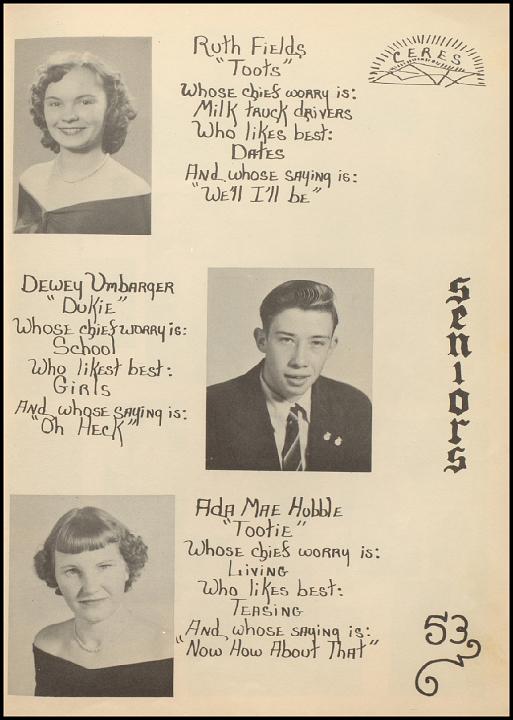 Ruth Fields
"Toots"
Whose chief worry is:
Milk truck drivers
Who likes best:
Dates
And whose saying is:
"We'll I'll be"
CERES
Dewey Umbarger
"Dukie"
Whose chief worry is:
School
Who likest best:
Girls
And whose saying is:
"Oh Heck"
seniors
Ada Mae Hubble
"Tootie"
Whose chief worry is:
Living
Who likes best:
Teasing
And whose saying is:
"Now How About That"
53